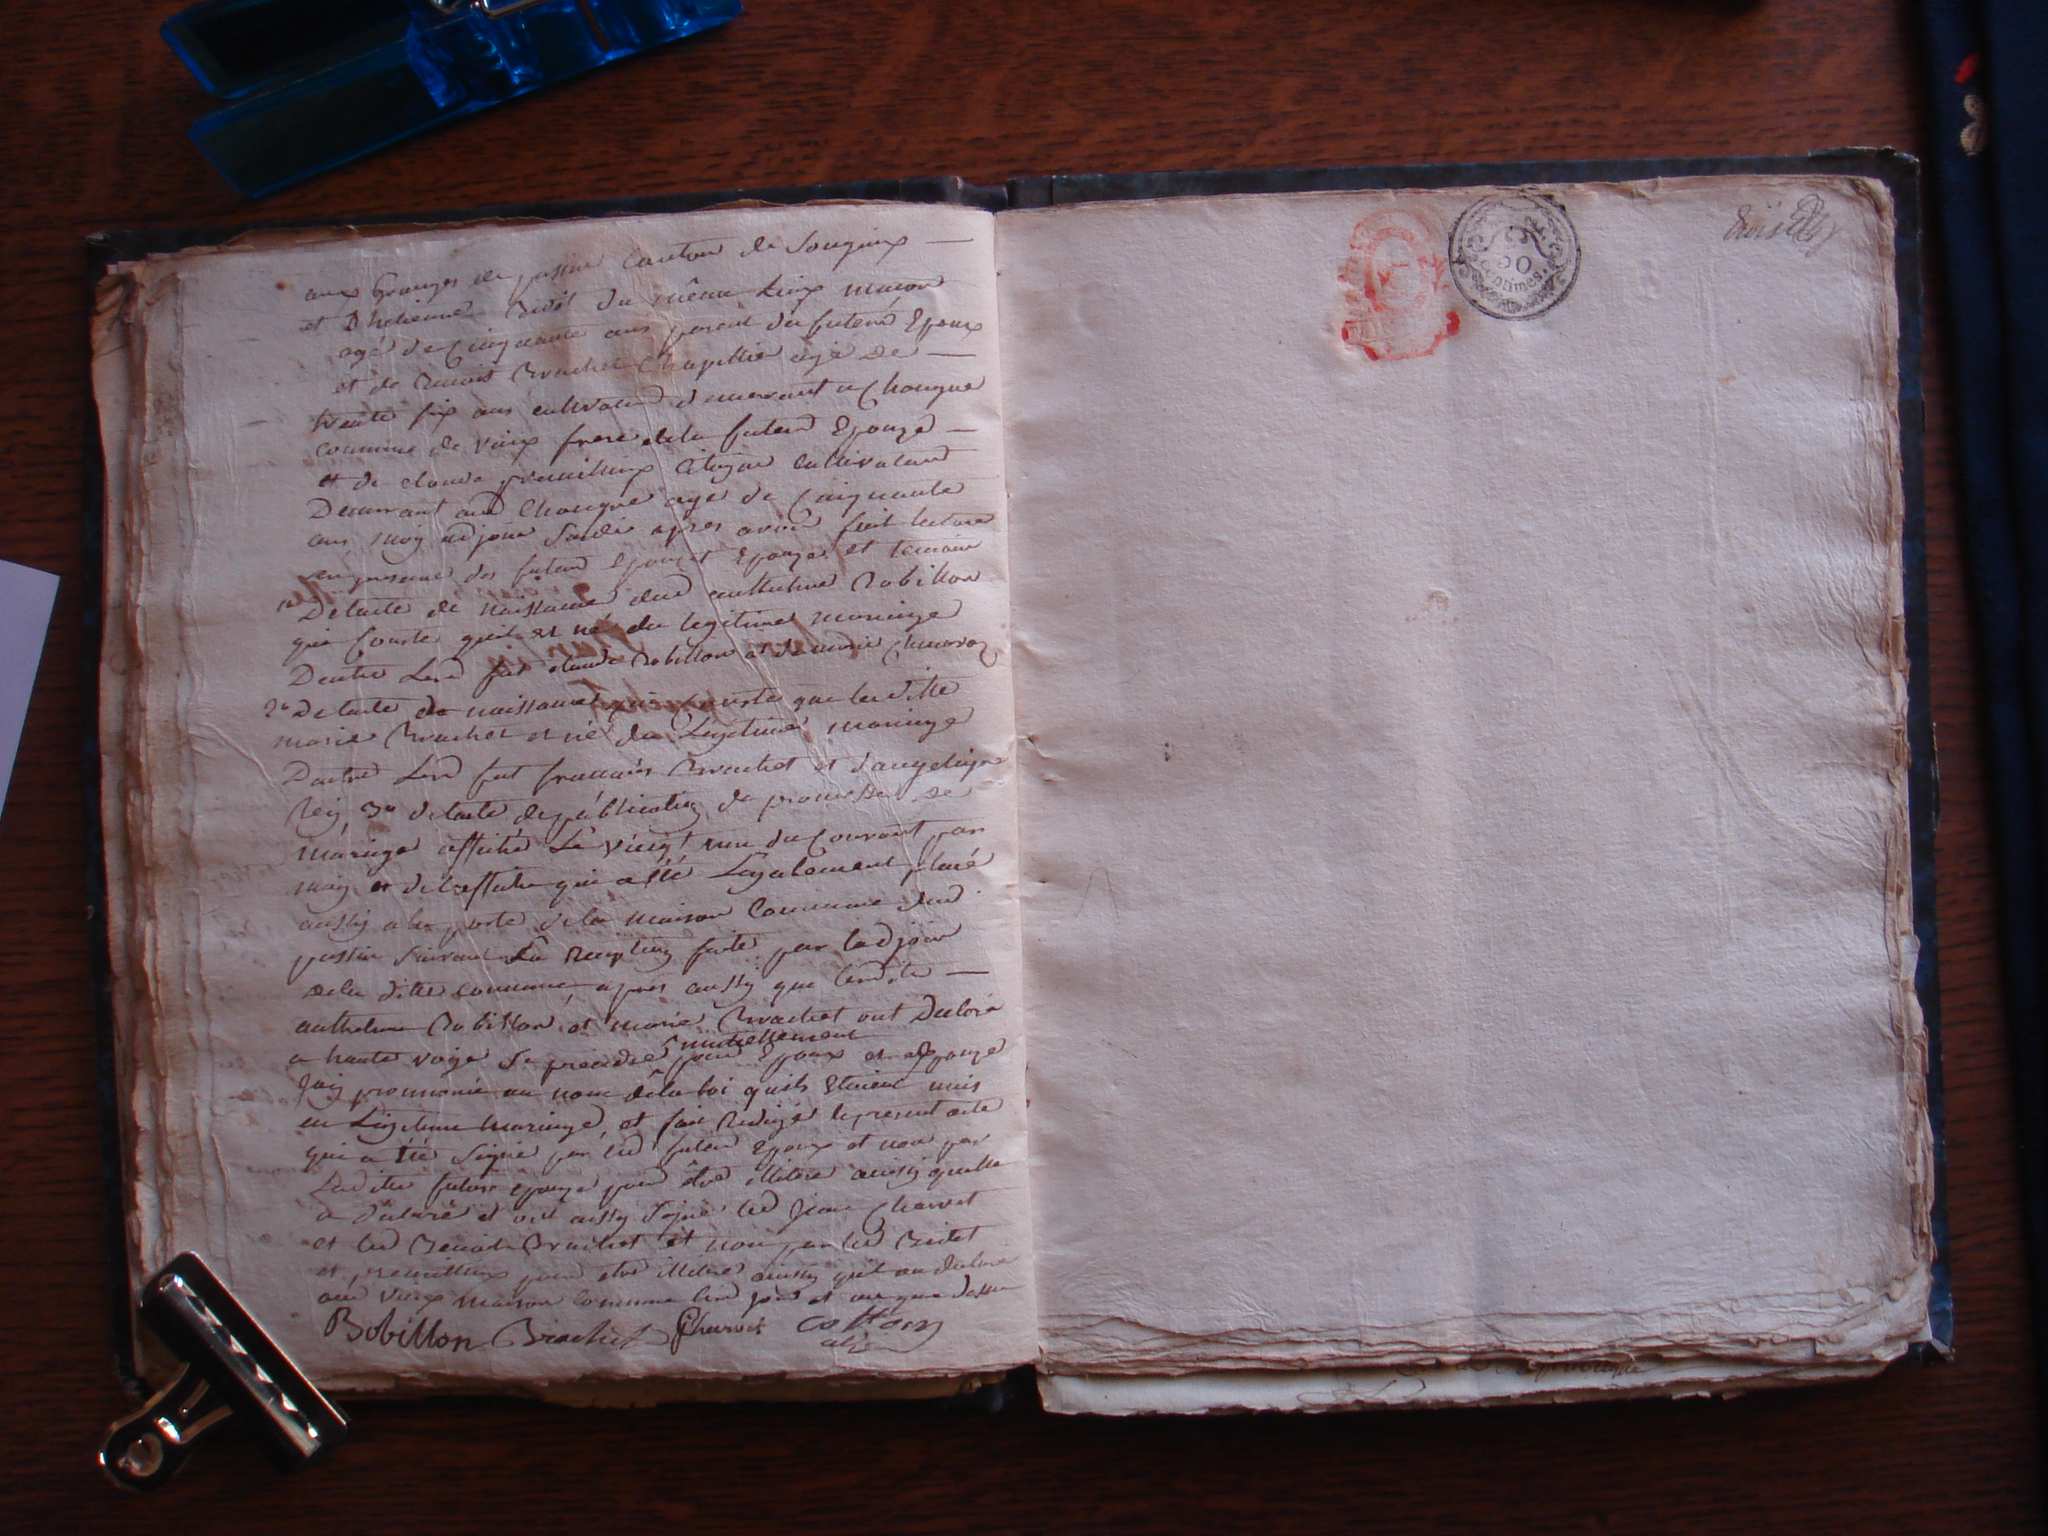 aux Granges de passin Canton de Songieux —
et Dhetienne Bidot du même Lieux macon
agé de Cinquante ans parent du futeur Epoux
et de Benoit Brachet Chapillié agé de —
trente six ans cultivateur demeurant a Chongne
commune de vieux frere de la futeur Epouze —
et de claude premillieux Citoyen Cultivateur
Demeurant aud Chongne agé de Cinquante
ans, moy adjoin Susdi apres avoir fait lecture
en presence des futeur Epoux et Epouze et temoin
1o De lacte de naissance dud anthelme Bobillon
qui Conste quil est né du legitime mariage
Dentre Led fut claude Bobillon et de marie Charvoz
2o De lacte de naissance qui Conste que la ditte
marie Brachet et né du Legitime mariage
Dentre Led fut francois Brachet et d'angelique
Rey 3o de lacte de publication de promesse de
mariage affiché Le vingt un du Courant par
moy et de l'affiche qui a été Legalement placé
aussy a la porte de la maison Commune dud
passin suivant La reception faite par ladjoin
de la ditte commune, apres aussy que lesdits —
anthelme Bobillon et marie Brachet ont Declaré
a haute voye se prendre mutuellement pour Epoux et Epouze
Jay prononcé au nom de la loi quils Etoient unis
en Legitime mariage, et fait Redigé le present acte
qui a été Signé par led futeur Epoux et non par
Laditte future epouze pour être illitere ainsy quelle
a declaré et ont aussy signé led Jean Charvet
et led Benoit Brachet et non par led Bidot
et premillieux pour etre illitere ainsy quil on declaré
aud vieux maison commune lesd jour et an que dessus
Bobillon Brachet JCharvet Cottin
adj
50
centimes.